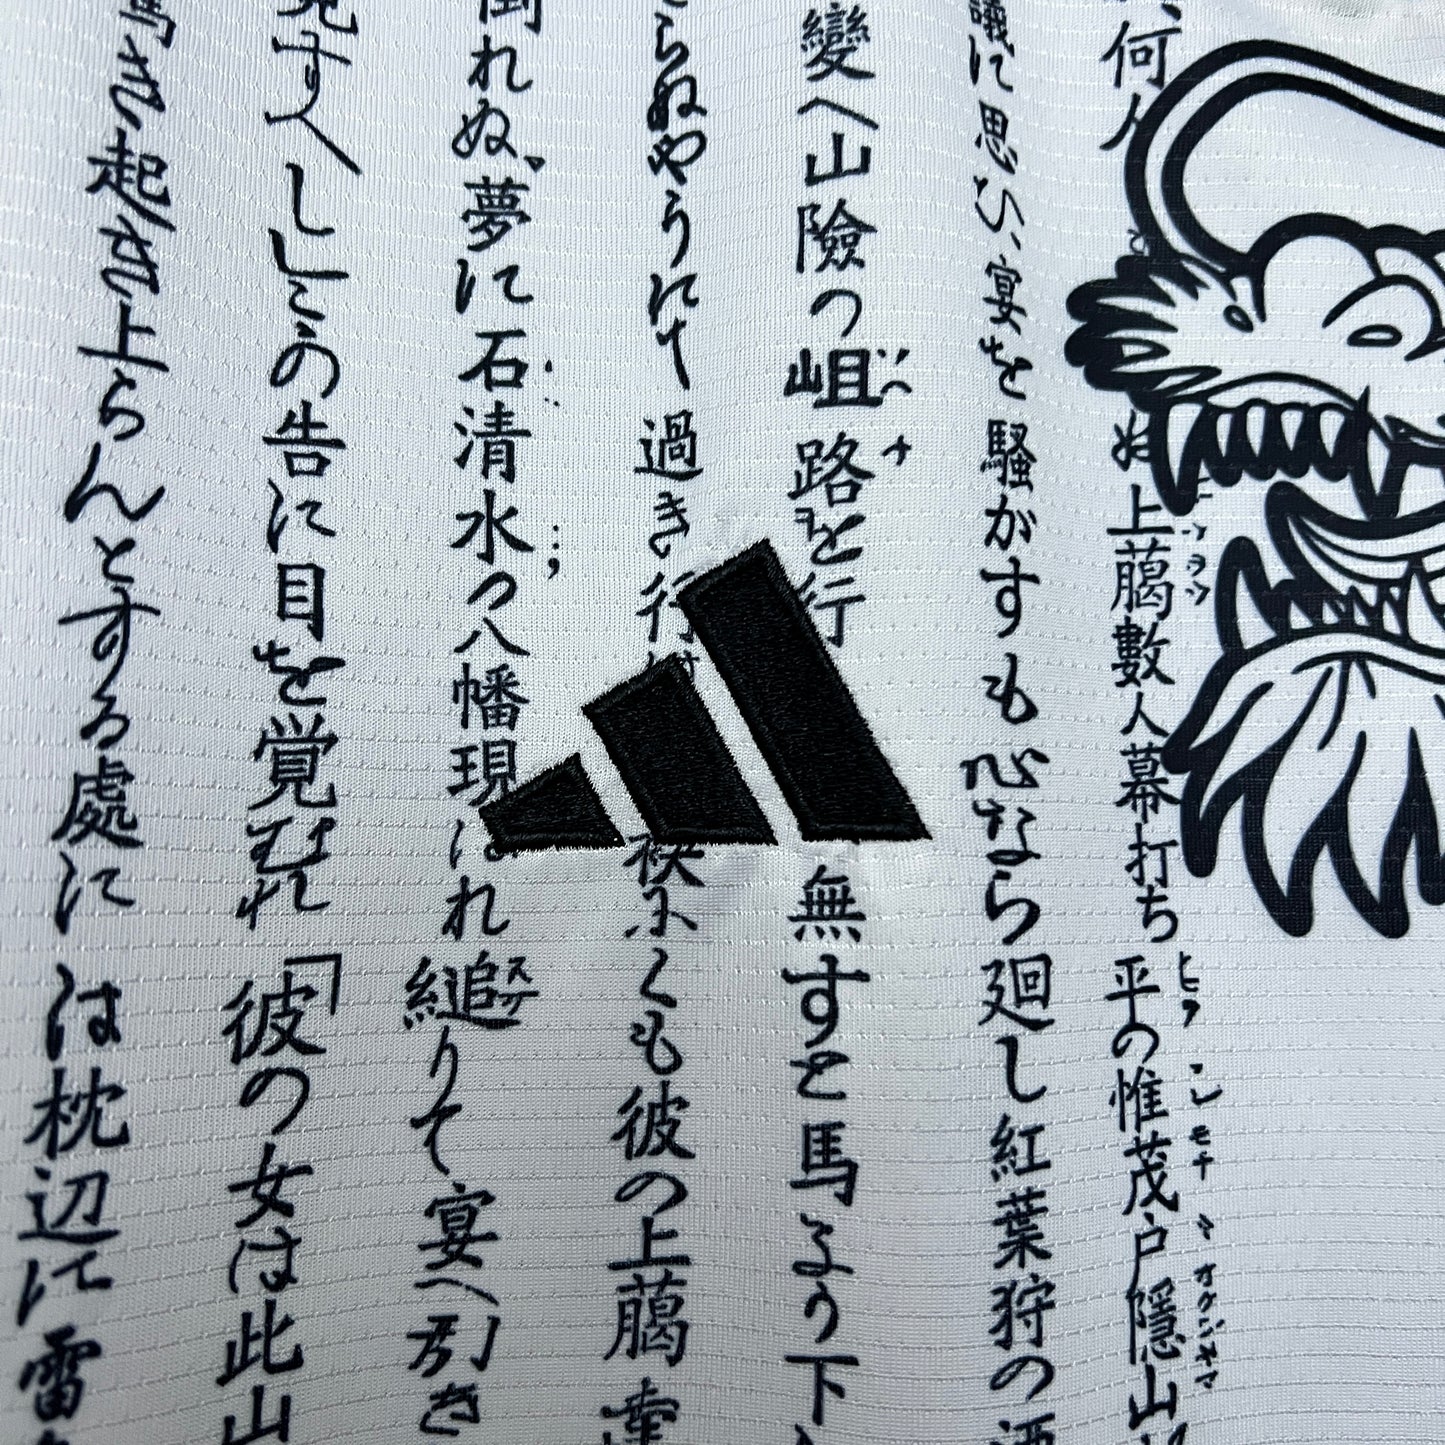 何人
ぬ上﨟數人幕打ち平の惟茂戸隱山
に思ひ、宴を騒がすも心なら廻し紅葉狩の酒
變へ山險の岨路を行
無すと馬より下
らぬやうにて過き行
くも彼の上﨟
倒れぬ、夢に石清水の八幡現はれ縋りて宴へ引き
見すべしとの告に目を覚むれ「彼の女は此山
き起き上らんとする處には枕辺に雷